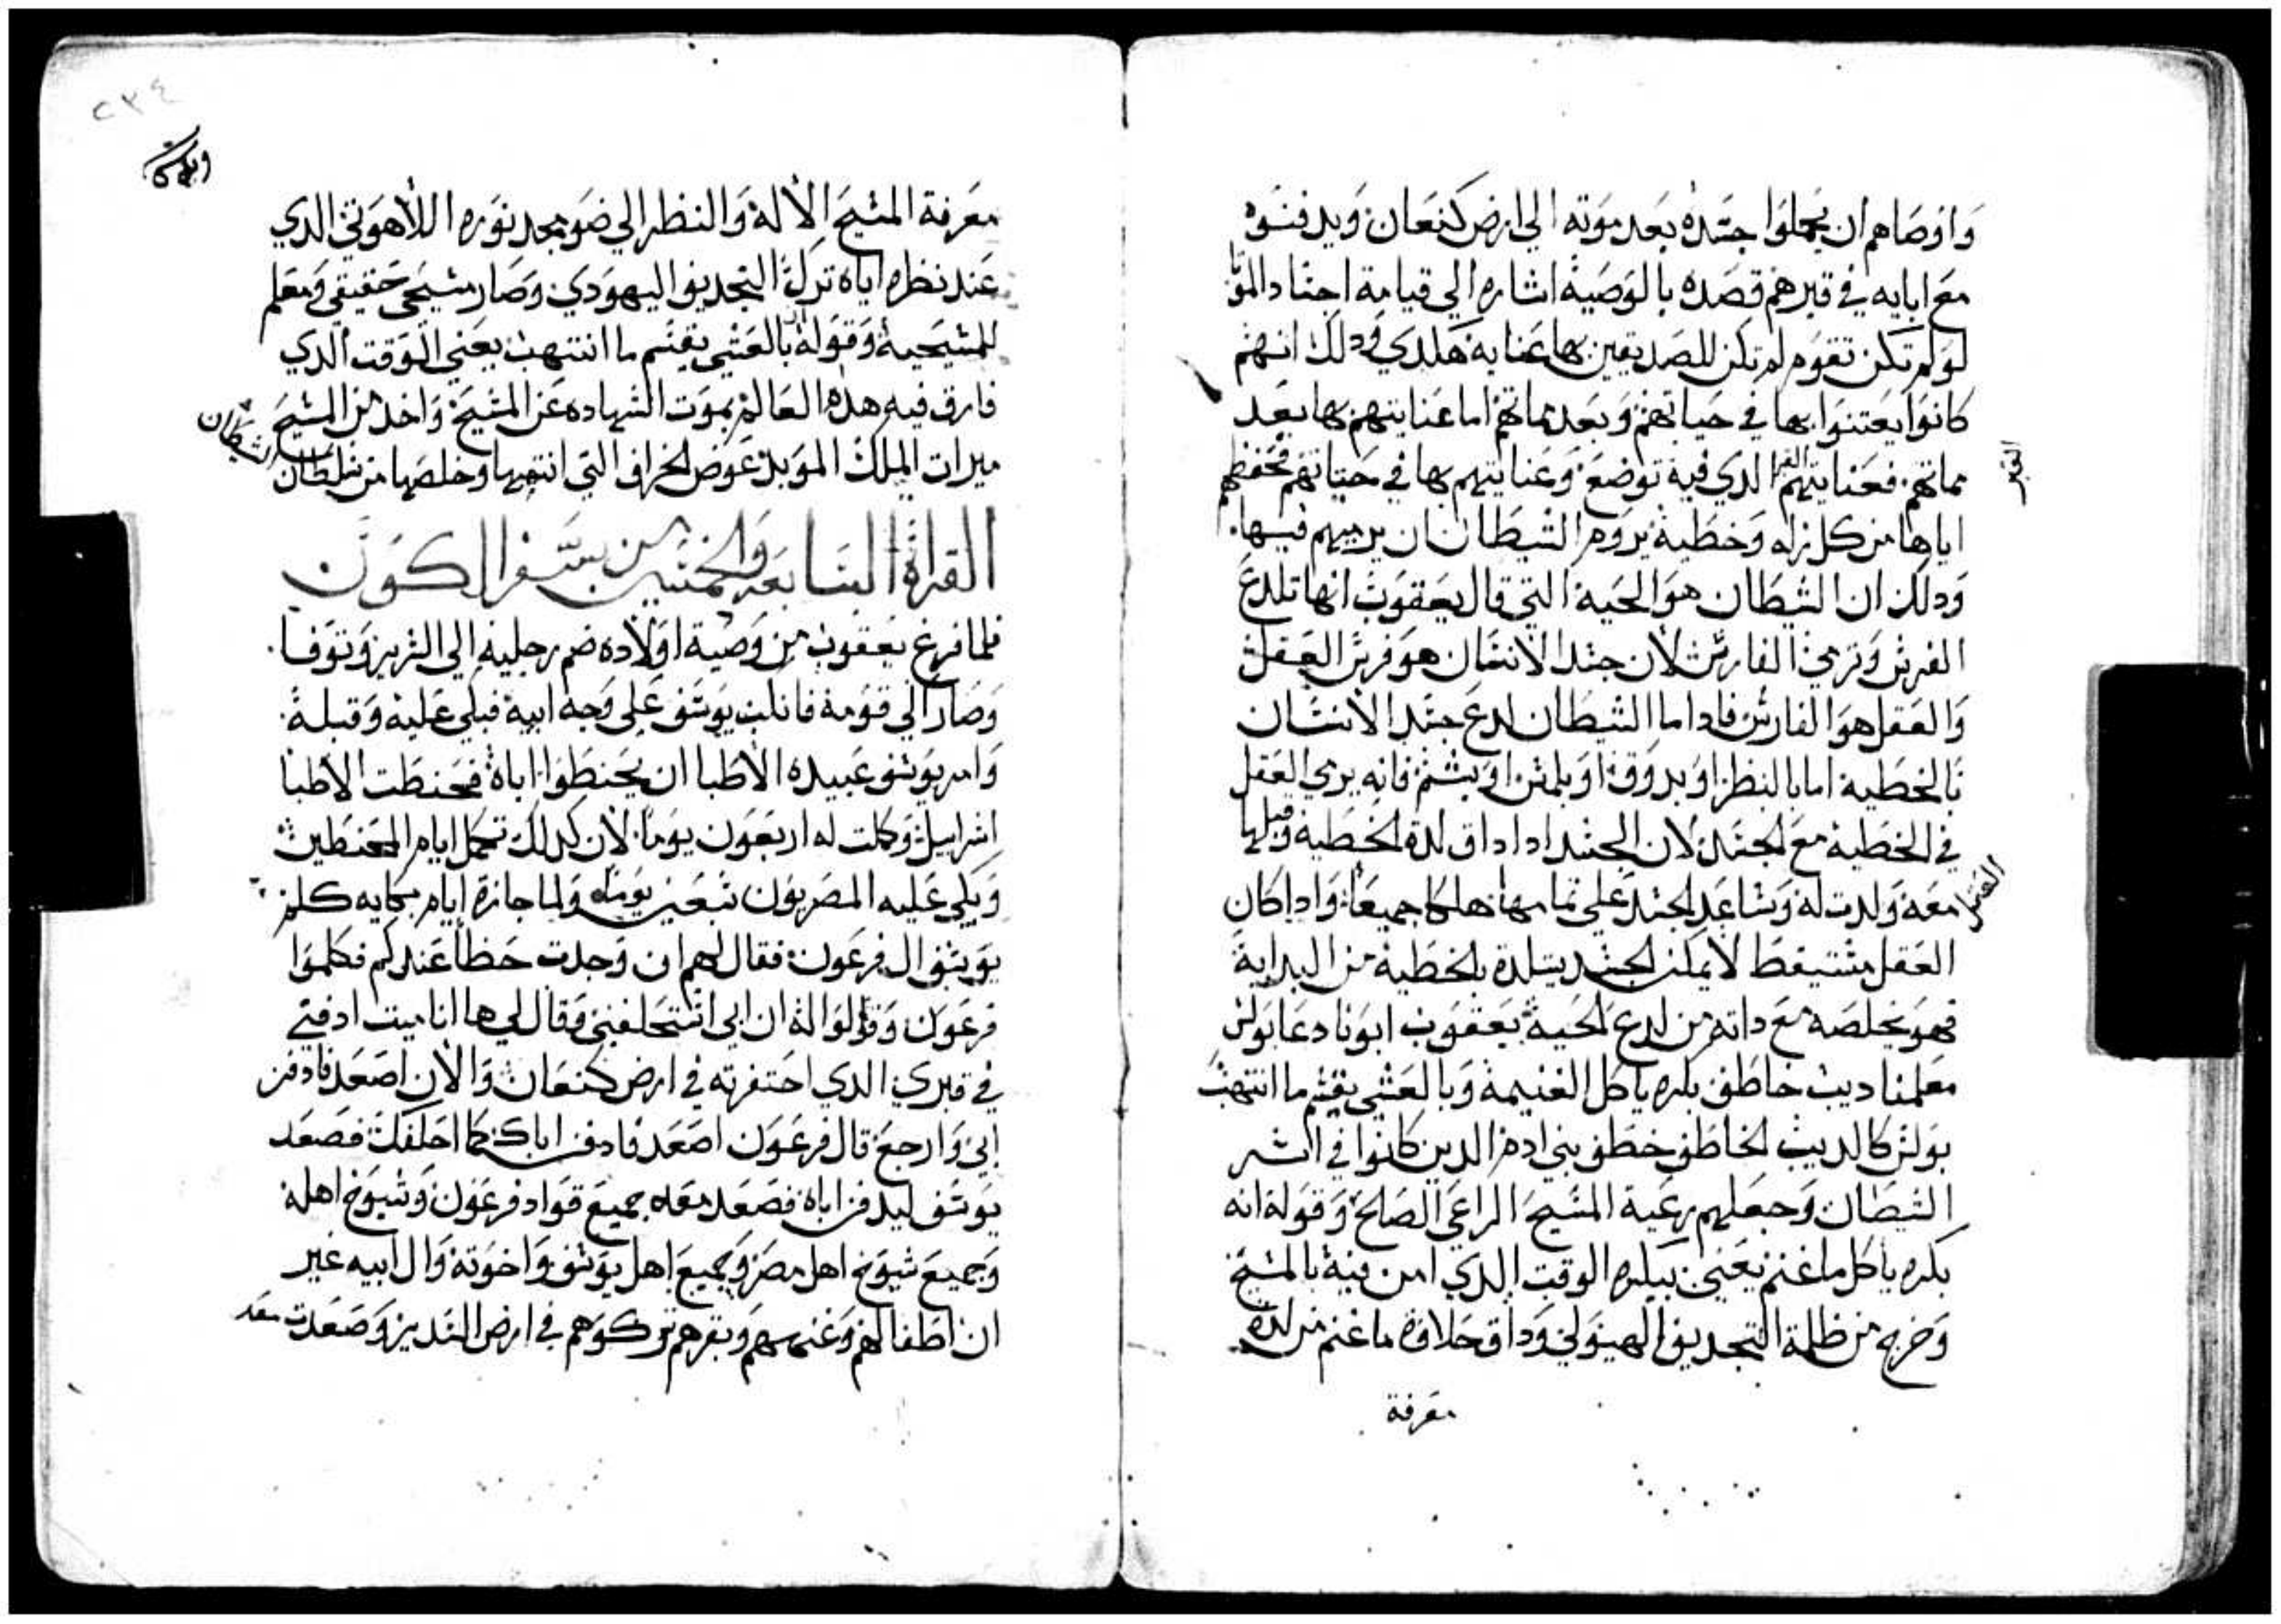 واوصاهم ان يحملوا جسده بعد موته الي ارض كنعان ويدفنوه
مع ابايه في قبرهم قصده بالوصية اشاره الي قيامة اجساد الموتا
لو لم تكن تقوم لم تكن للصديقين بها عناية هكدي ودلك انهم
كانوا يعتنوا بها في حياتهم وبعد مماتهم اما عنايتهم بها بعد
مماتهم فعنايتهم القبر الدي فيه توضع وعنايتهم بها في حياتهم فحفظهم
اياها من كل زله وخطية يروم الشيطان ان يرميهم فيها
ودلك ان الشيطان هو الحية التي قال يعقوب انها تلدع
الفرس وترمي الفارس لان جسد الانسان هو فرس العقل
والعقل هو الفارس فادا ما الشيطان لدع جسد الانسان
بالخطية اما بالنظر او بدوق او بلمس او بشم فانه يرمي العقل
في الخطية مع الجسد لان الجسد ادا داق لدة الخطية وقبلها
العقل معه ولدت له وساعد الجسد علي تمامها هلكا جميعا وادا كان
العقل مستيقظ لا يمكن الجسد يتلدد بالخطية من البداية
فهو يخلصه مع داته من لدع الحية يعقوب ابونا دعا بولس
معلمنا ديب خاطف بكره ياكل الغنيمة وبالعشي يقسم ما انتهب
بولس كالديب الخاطف خطف بني ادم الدين كانوا في اسر
الشيطان وجعلهم رعية المسيح الراعي الصالح وقوله انه
بكره ياكل ما غنم يعني ببكره الوقت الدي امن فيه بالمسيح
وخرج من ظلمة التجديف الهيولي وداق حلاوة ما غنم من لدة
معرفة
٢٣٤
معرفة المسيح الاله والنظر الي ضو مجد نوره اللاهوتي الدي
عند نظره اياه ترك التجديف اليهودي وصار مسيحي حقيقي ومعلم
للمسيحية وقوله بالعشي يقسم ما انتهب يعني الوقت الدي
فارق فيه هده العالم بموت الشهاده عن المسيح واخد من المسيح
ميرات الملك الموبد عوض الخراف التي انتهبها وخلصها من سلطان الشيطان
القراة السابعه والخمسين من سفر الكون
فلما فرغ يعقوب من وصية اولاده ضم رجليه الي السرير وتوفا
وصار الي قومه فانكب يوسف علي وجه ابيه فبكي عليه وقبله
وامر يوسف عبيده الاطبا ان يحنطوا اباه فحنطت الاطبا
اسراييل وكملت له اربعون يوما لان كدلك تكمل ايام المحنطين
وبكي عليه المصريون سبعين يوما ولما جازة ايام بكايه كلم
يوسف ال فرعون فقال لهم ان وجدت حظا عندكم فكلموا
فرعون وقولوا له ان ابي استحلفني وقال لي ها انا ميت ادفني
في قبري الدي احتفرته في ارض كنعان والان اصعد فادفن
ابي وارجع قال فرعون اصعد فادفن اباك كما احلفك فصعد
يوسف ليدفن اباه فصعد معه جميع قواد فرعون وشيوخ اهله
وجميع شيوخ اهل مصر وجميع اهل يوسف واخوته وال ابيه غير
ان اطفالهم وغنمهم وبقرهم تركوهم في ارض السدير وصعدت معه